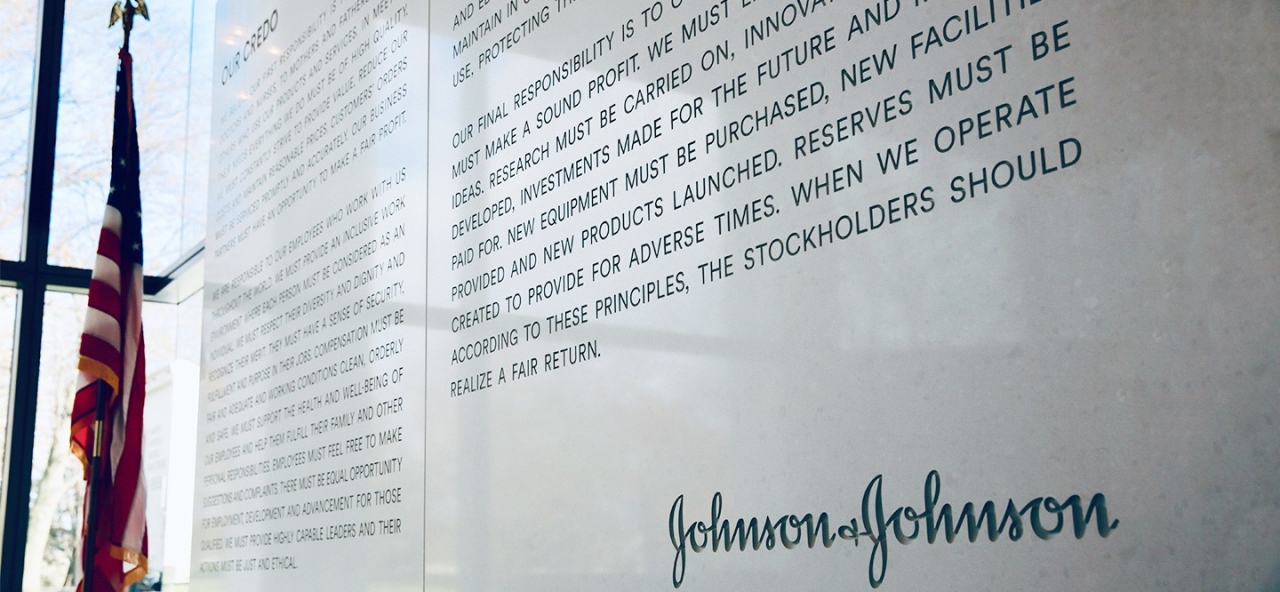 OUR CREDO
RESPONSIBILITY IS
TO MOTHERS AND FATHERS
OUR PRODUCTS AND SERVICES. IN MEETING
EVERYTHING WE DO MUST BE OF HIGH QUALITY.
CONSTANTLY STRIVE TO PROVIDE VALUE, REDUCE OUR
AND MAINTAIN REASONABLE PRICES. CUSTOMERS' ORDERS
MUST BE SERVICED PROMPTLY AND ACCURATELY. OUR BUSINESS
PARTNERS MUST HAVE AN OPPORTUNITY TO MAKE A FAIR PROFIT.
WE ARE RESPONSIBLE TO OUR EMPLOYEES WHO WORK WITH US
THROUGHOUT THE WORLD. WE MUST PROVIDE AN INCLUSIVE WORK
ENVIRONMENT WHERE EACH PERSON MUST BE CONSIDERED AS AN
INDIVIDUAL. WE MUST RESPECT THEIR DIVERSITY AND DIGNITY AND
RECOGNIZE THEIR MERIT. THEY MUST HAVE A SENSE OF SECURITY,
FULFILLMENT AND PURPOSE IN THEIR JOBS. COMPENSATION MUST BE
FAIR AND ADEQUATE AND WORKING CONDITIONS CLEAN, ORDERLY
AND SAFE. WE MUST SUPPORT THE HEALTH AND WELL-BEING OF
OUR EMPLOYEES AND HELP THEM FULFILL THEIR FAMILY AND OTHER
PERSONAL RESPONSIBILITIES. EMPLOYEES MUST FEEL FREE TO MAKE
SUGGESTIONS AND COMPLAINTS. THERE MUST BE EQUAL OPPORTUNITY
FOR EMPLOYMENT, DEVELOPMENT AND ADVANCEMENT FOR THOSE
QUALIFIED. WE MUST PROVIDE HIGHLY CAPABLE LEADERS AND THEIR
ACTIONS MUST BE JUST AND ETHICAL.
AND
MAINTAIN IN
USE, PROTECTING
OUR FINAL RESPONSIBILITY IS TO
MUST MAKE A SOUND PROFIT. WE MUST
IDEAS. RESEARCH MUST BE CARRIED ON,
DEVELOPED, INVESTMENTS MADE FOR THE FUTURE AND
PAID FOR. NEW EQUIPMENT MUST BE PURCHASED, NEW FACILITIES
PROVIDED AND NEW PRODUCTS LAUNCHED. RESERVES MUST BE
CREATED TO PROVIDE FOR ADVERSE TIMES. WHEN WE OPERATE
ACCORDING TO THESE PRINCIPLES, THE STOCKHOLDERS SHOULD
REALIZE A FAIR RETURN.
Johnson & Johnson